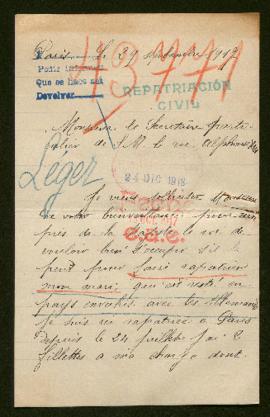 Paris le 27
1917
43771
Pedir informes
Que se hace así
Devolver
REPATRIACIÓN
CIVIL
Monsieur le Secrétaire parti
culier de S.M. le roi Alphonse XIII
Leger
24 DIC 1918
Je viens solliciter
de votre bienveillance
près de sa Majesté le roi de
vouloir bien s'occuper s'il
peut faire rapatrier
mon mari qui est resté en
pays envahis avec les Allemands
je suis rapatriée à Paris
depuis le 24 juillet j'ai 2
fillettes a ma charge dont